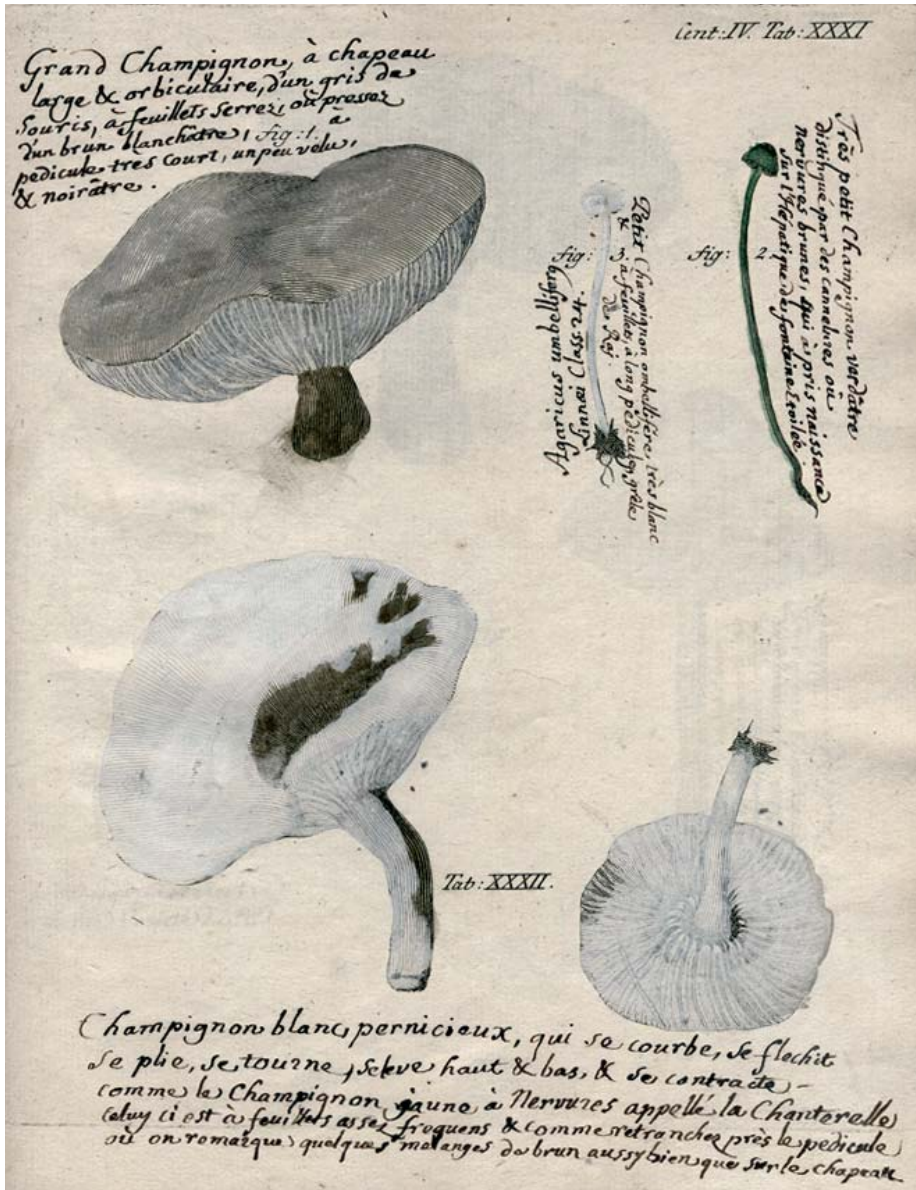 Cent: IV. Tab: XXXI
Grand Champignon, à chapeau
large & orbiculaire, d'un gris de
Souris, à feuillets serrez, où pressez
d'un brun blanchâtre, fig: 1. à
pedicule tres court, un peu velu,
& noirâtre.
Petit Champignon ombellifére, très blanc
& à feuillets, à long pédicule, grêle
de Raj.
fig: 3.
Agaricus umbelliferus
Linnæi Class: 24.
Très petit Champignon verdâtre
distingué par des cannelures où
nervures brunes, qui à pris naissance
sur l'Hépatique de fontaine Etoilée.
fig: 2.
Tab: XXXII.
Champignon blanc, pernicieux, qui se courbe, se flechit
se plie, se tourne, seleve haut & bas, & se contracte -
comme le Champignon jaune à Nervures appellé la Chanterelle
Celuy ci est à feuillets assez frequens & comme retranchez près le pedicule
où on remarque quelques melanges de brun aussy bien que sur le chapeau